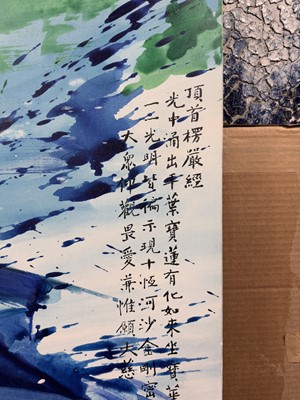 頂首楞嚴經
光中涌出千葉寶蓮有化如來坐寶華
一一光明皆徧示現十恆河沙金剛密
大眾仰觀畏愛兼惟願大慈